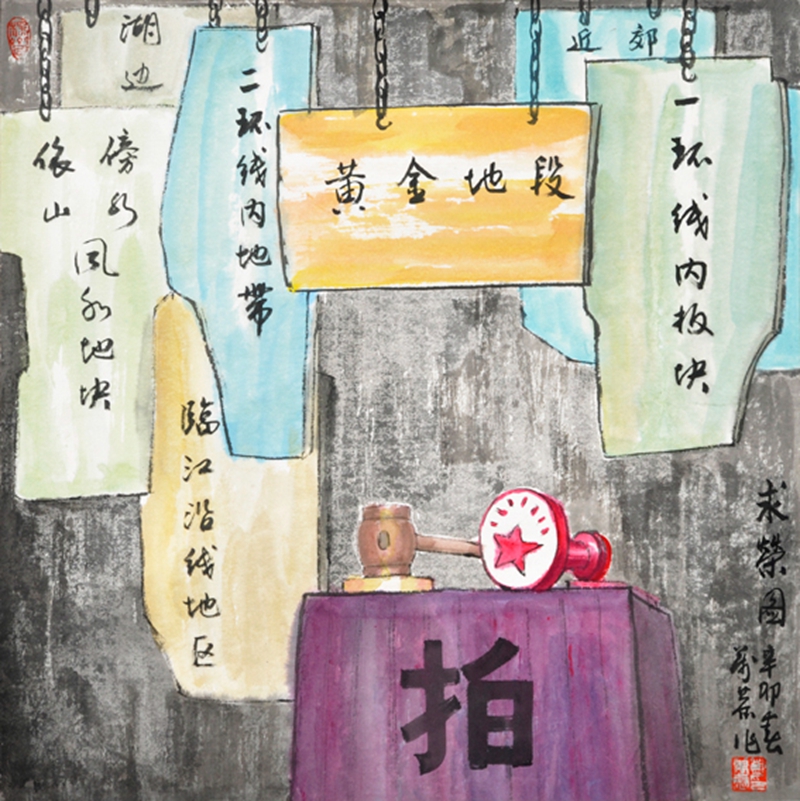 湖边
依山
傍水
风水地块
二环线内地带
黄金地段
近郊
一环线内板块
临江沿线地区
拍
求榮图
辛卯春